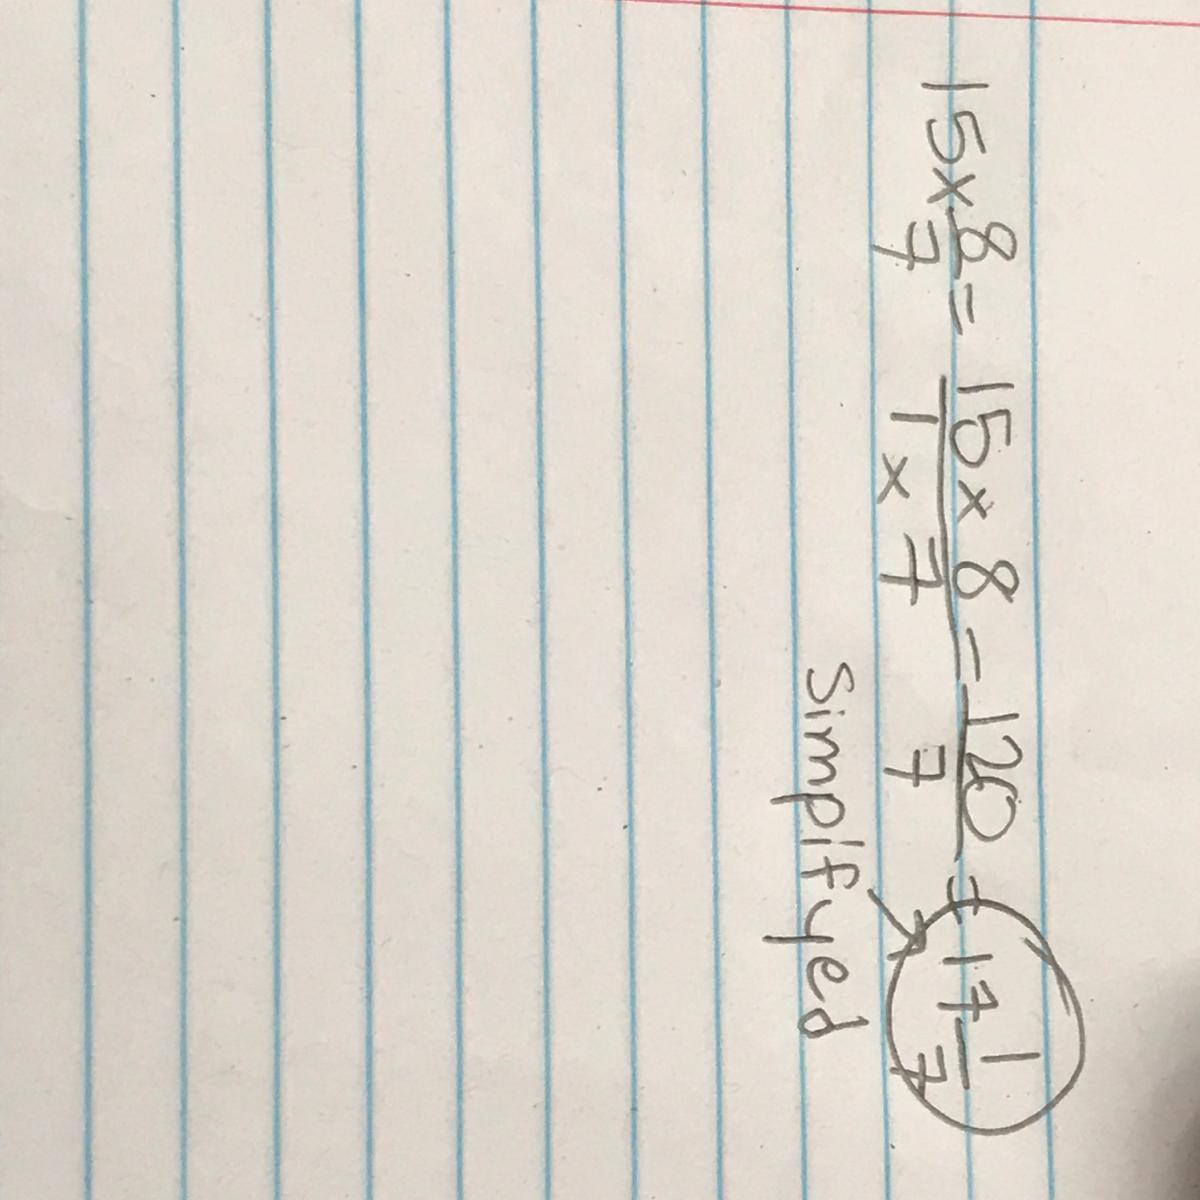 15 x 8/7 = 15 x 8 / 1 x 7 = 120/7 = 17 1/7
Simplfyed